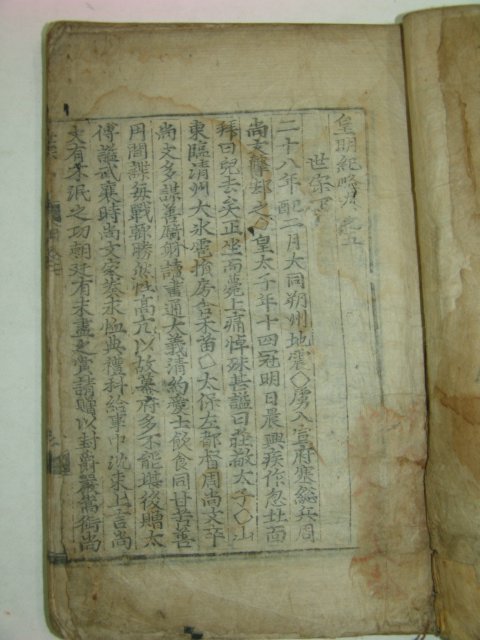 皇明紀略卷之五
世宗下
二十八年己酉二月大同朔州地震○虜入宣府塞總兵周
尚文擊却之○皇太子年十四冠明日晨興疾作忽北面
拜曰兒去矣正坐而薨上痛悼殊甚謚曰莊敬太子○山
東臨清州大氷雹損房舍禾苗○太保左都督周尚文卒
尚文多謀善騎射讀書通大義清約愛士飲食同甘苦善
用間諜每戰輒勝然性高亢以故幕府多不能堪後贈太
傅謚武襄時尚文家奏求恤典禮科給事中沈束上言尚
文有不泯之功朝廷有未盡之賞請贈以封爵嚴嵩銜尚